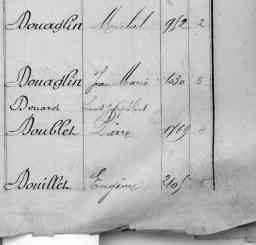 Douaglin Michel 952 2
Douaglin Jean Marie 1030 5
Douard Louis
Doublet Pierre 1769
Douillet Eugène 2105